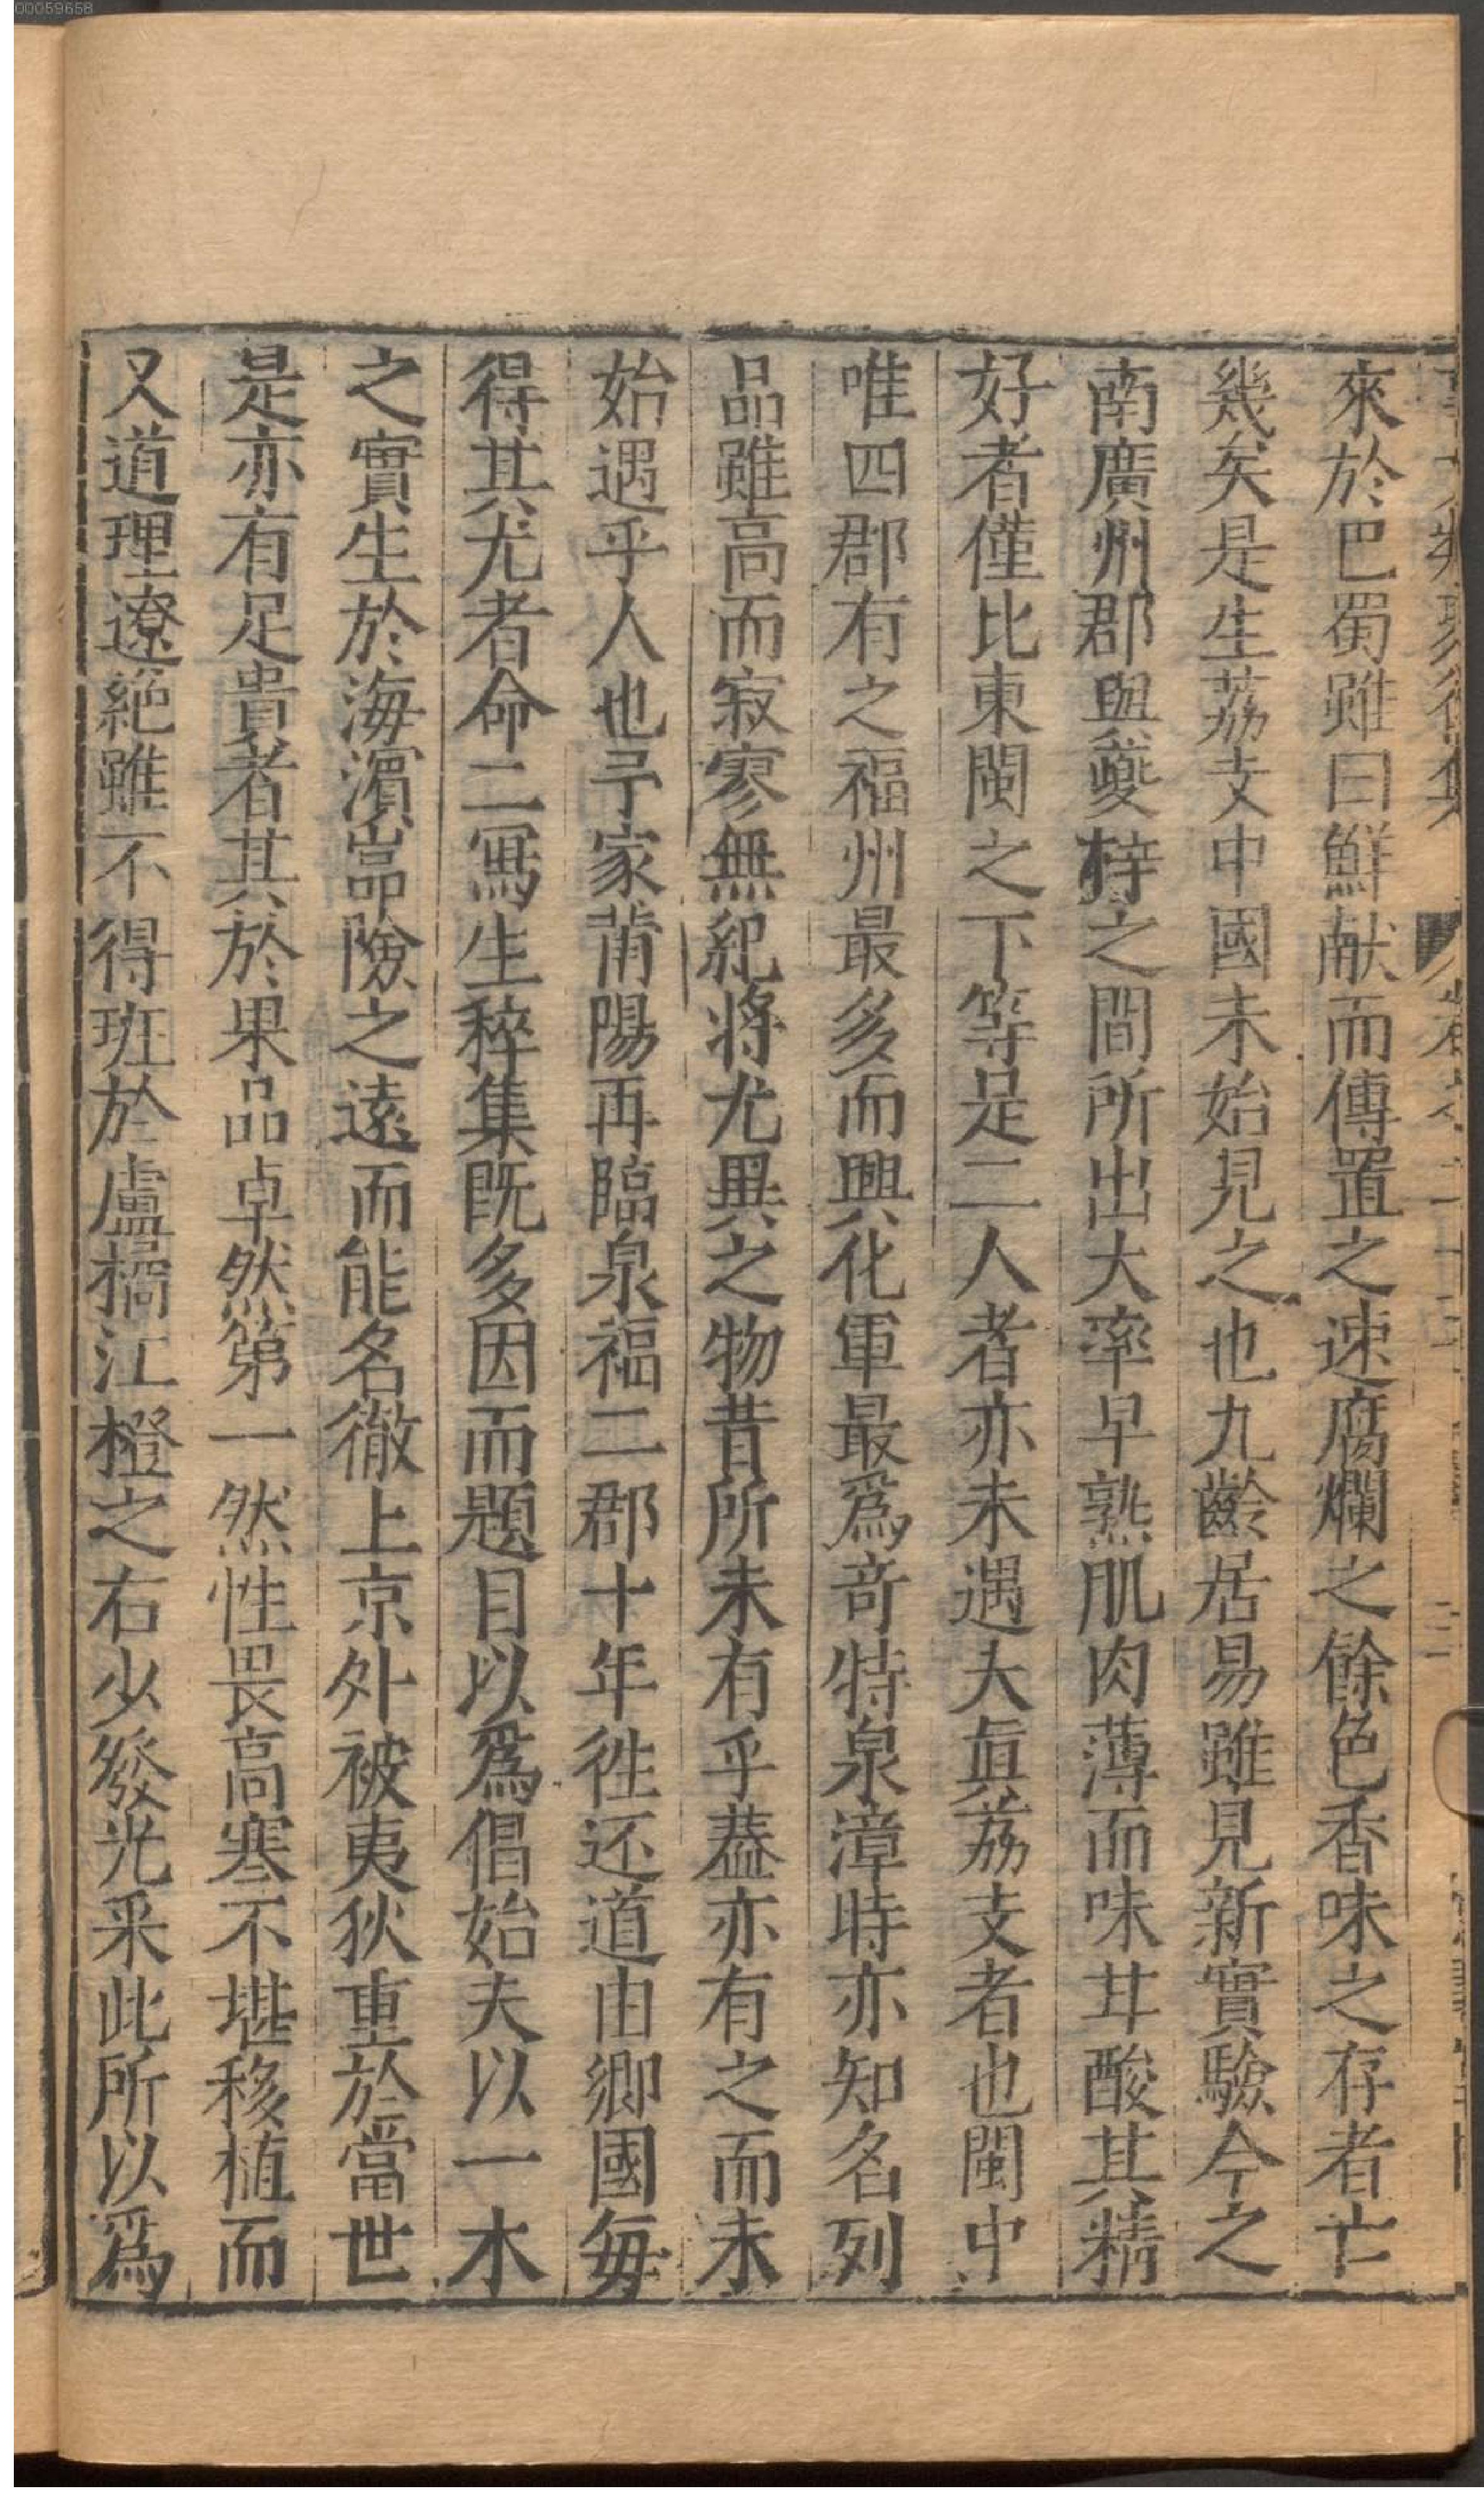 00059658
來於巴蜀雖曰鮮献而傳置之速腐爛之餘色香味之存者亡
幾矣是生荔支中國未始見之也九齡居易雖見新實驗今之
南廣州郡與夔梓之間所出大率早熟肌肉薄而味甘酸其精
好者僅比東閩之下等足二人者亦未遇夫眞荔支者也閩中
唯四郡有之福州最多而興化軍最爲竒特泉漳時亦知名列
品雖高而寂寥無紀將尤異之物昔所未有乎葢亦有之而未
始遇乎人也予家莆陽再臨泉福二郡十年徃还道由鄉國毎
得其尤者命二冩生稡集既多因而題目以爲倡始夫以一木
之實生於海濵嵓險之遠而能名徹上京外被夷狄重於當世
是亦有足貴者其於果品卓然第一然性畏高寒不堪移植而
又道理遼絶雖不得班於盧橘江橙之右少發光采此所以爲